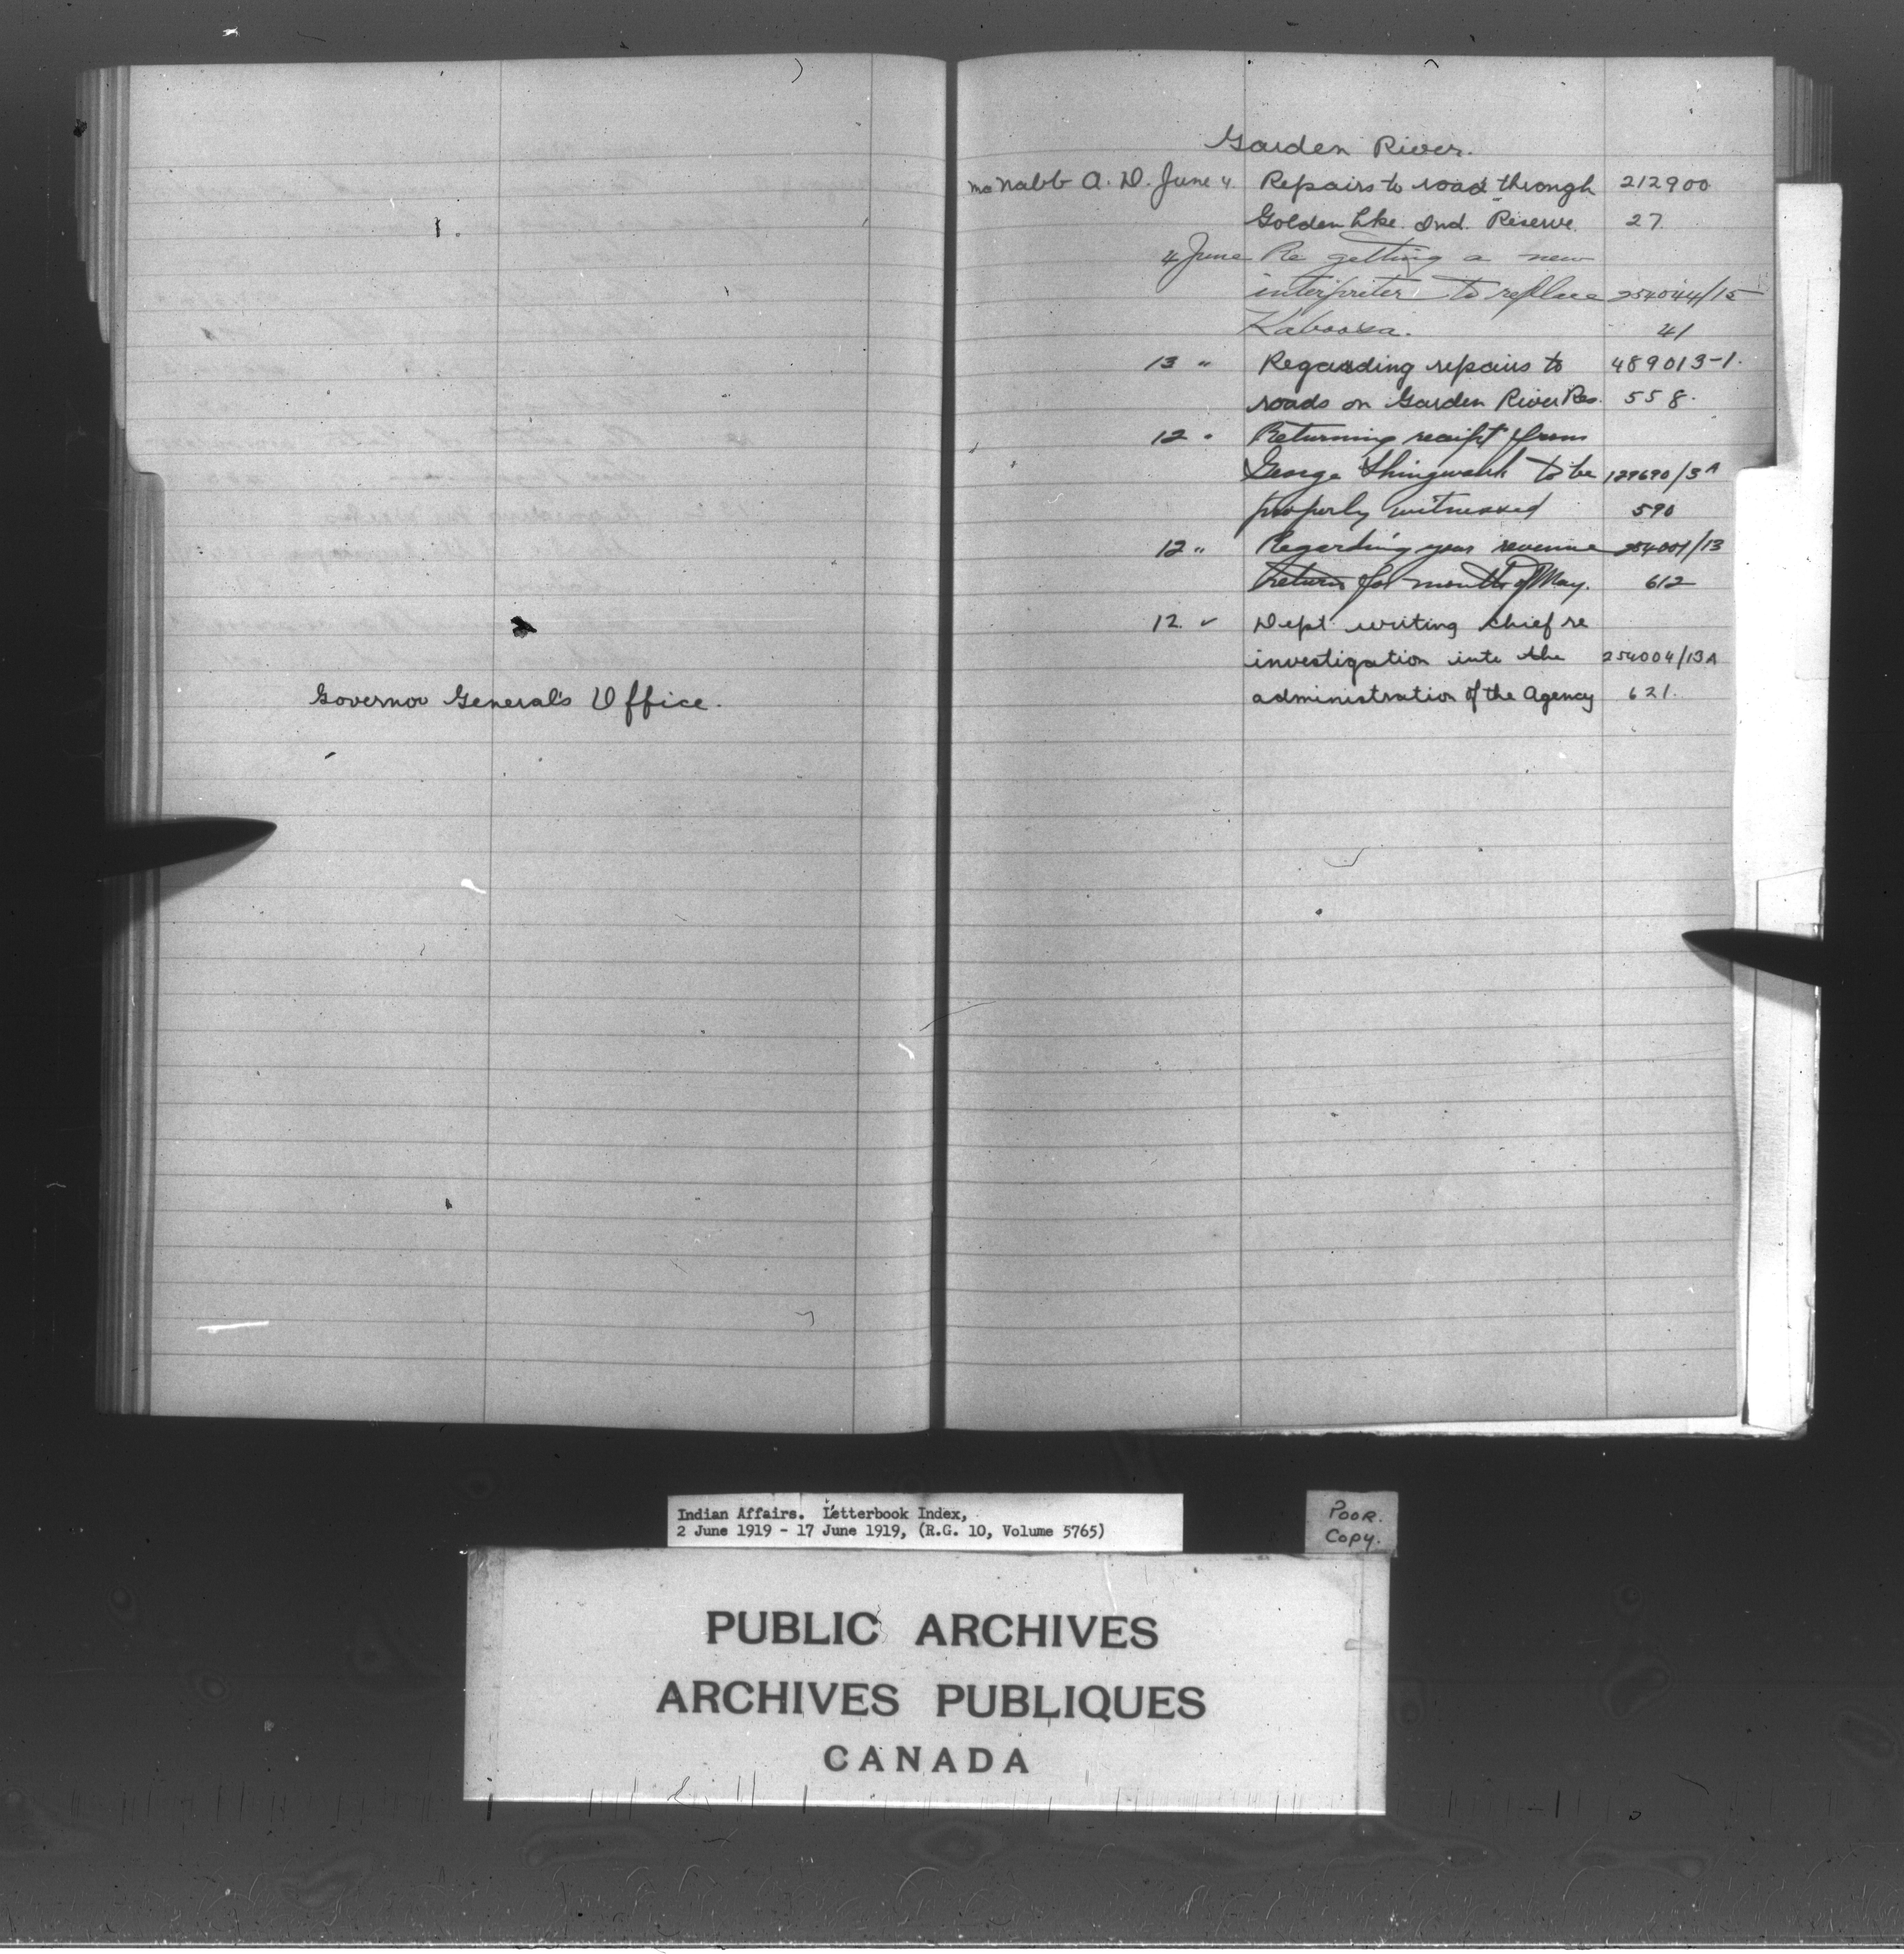 Governor General's Office.
Garden River.
McNabb A. D. June 4. Repairs to road through 212900
Golden Lke. Ind. Reserve. 27.
4 June Re getting a new
interpreter to replace 254044/15
Kaboosa. 41
13 " Regarding repairs to 489013-1.
roads on Garden River Res. 558.
12 " Returning receipt from
George Shingwauk to be 129690/3A
properly witnessed 590
12 " Regarding your revenue 254004/13
return for month of May. 612
12. " Dept writing chief re
investigation into the 254004/13A
administration of the Agency 621.
Indian Affairs. Letterbook Index,
2 June 1919 - 17 June 1919, (R.G. 10, Volume 5765)
POOR.
Copy.
PUBLIC ARCHIVES
ARCHIVES PUBLIQUES
CANADA